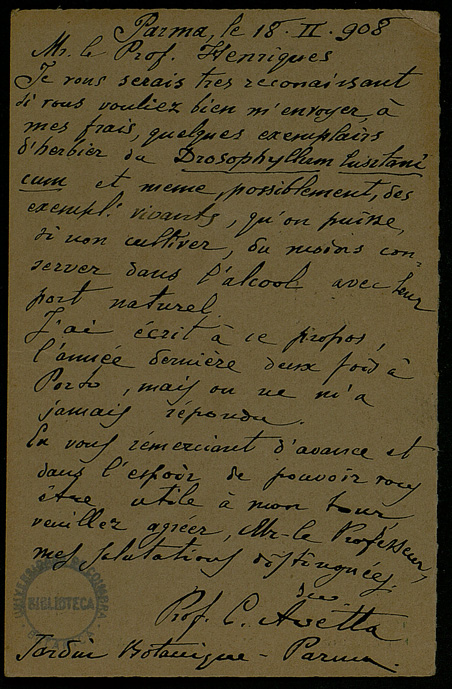 Parma, le 18. II. 908
Mr. le Prof. Henriques
Je vous serais tres reconaissant
si vous vouliez bien m'envoyer, à
mes frais, quelques exemplairs
d'herbier du Drosophyllum Lusitani
cum et meme, possiblement, des
exempl. vivants, qu'on puisse,
si non cultiver, du moins con-
server dans l'alcool avec leur
port naturel.
J'ai écrit à ce propos,
l'année dernière deux fois à
Porto, mais on ne m'a
jamais répondu.
En vous rémerciant d'avance et
dans l'espoir de pouvoir vous
être utile à mon tour
veuillez agréer, Mr. le Professeur,
mes salutations distinguées
du
Prof. C. Avetta
Jardin Botanique - Parma.
BIBLIOTECA